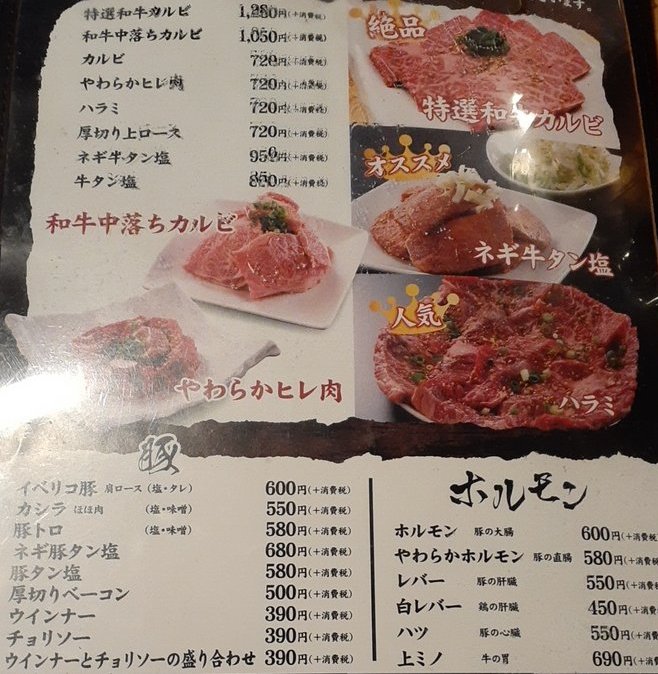 います。
特選和牛カルビ 1,280円(+消費税)
和牛中落ちカルビ 1,050円(+消費税)
カルビ 720円(+消費税)
やわらかヒレ肉 720円(+消費税)
ハラミ 720円(+消費税)
厚切り上ロース 720円(+消費税)
ネギ牛タン塩 950円(+消費税)
牛タン塩 円(+消費税)
絶品
特選和牛カルビ
オススメ
ネギ牛タン塩
和牛中落ちカルビ
人気
やわらかヒレ肉
ハラミ
豚
イベリコ豚 肩ロース (塩・タレ) 600円(+消費税)
カシラ ほほ肉 (塩・味噌) 550円(+消費税)
豚トロ (塩・味噌) 580円(+消費税)
ネギ豚タン塩 680円(+消費税)
豚タン塩 580円(+消費税)
厚切りベーコン 500円(+消費税)
ウインナー 390円(+消費税)
チョリソー 390円(+消費税)
ウインナーとチョリソーの盛り合わせ 390円(+消費税)
ホルモン
ホルモン 豚の大腸 600円(+消費税)
やわらかホルモン 豚の直腸 580円(+消費税)
レバー 豚の肝臓 550円(+消費税)
白レバー 鶏の肝臓 450円(+消費税)
ハツ 豚の心臓 550円(+消費税)
上ミノ 牛の胃 690円(+消費税)